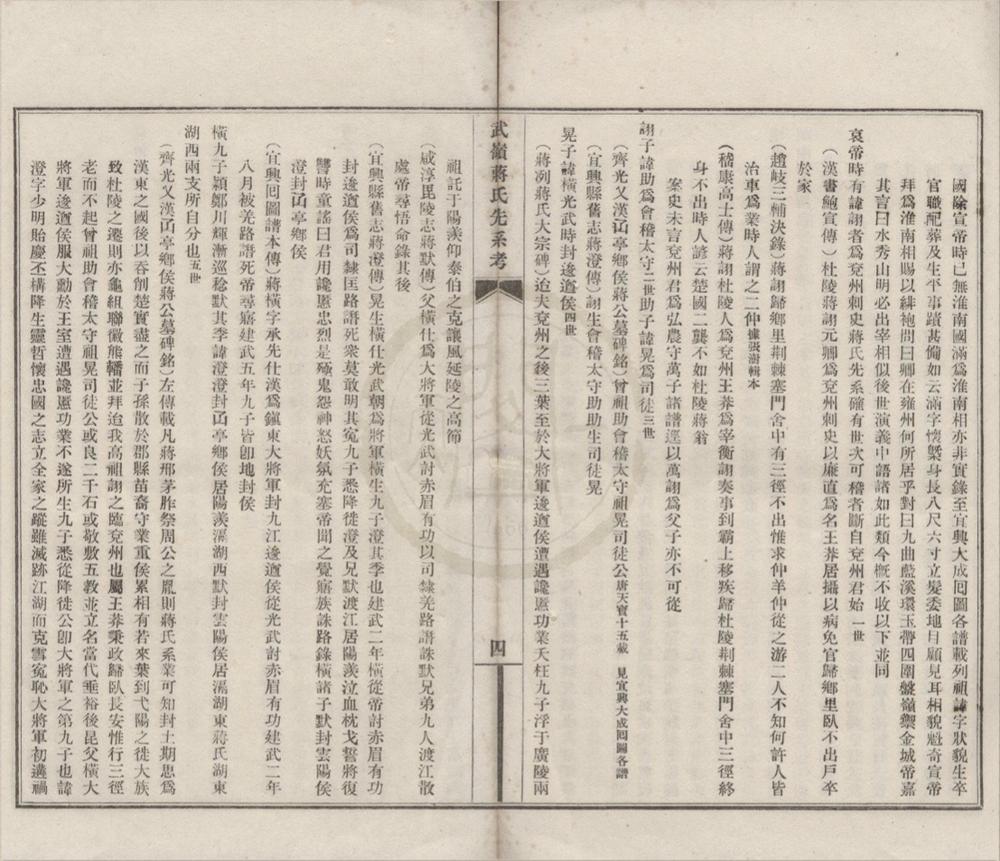 國除宣帝時已無淮南國滿爲淮南相亦非實錄至宜興大成囘圖各譜載列祖諱字狀貌生卒
官職配葬及生平事蹟甚備如云滿字懷槩身長八尺六寸立髮委地目顧見耳相貌魁奇宣帝
拜爲淮南相賜以緋袍問曰卿在雍州何所居乎對曰九曲藍溪環玉帶四圍盤嶺禦金城帝嘉
其言曰水秀山明必出宰相似後世演義中語諸如此類今槪不收以下並同
哀帝時有諱詡者爲兗州刺史蔣氏先系確有世次可稽者斷自兗州君始一世
(漢書鮑宣傳)杜陵蔣詡元卿爲兗州刺史以廉直爲名王莽居攝以病免官歸鄉里臥不出戶卒
於家
(趙岐三輔決錄)蔣詡歸鄉里荆棘塞門舍中有三徑不出惟求仲羊仲從之游二人不知何許人皆
治車爲業時人謂之二仲據張澍輯本
(稽康高士傳)蔣詡杜陵人爲兗州王莽爲宰衡詡奏事到霸上移疾歸杜陵荆棘塞門舍中三徑終
身不出時人諺云楚國二龔不如杜陵蔣翁
案史未言兗州君爲弘農守萬子諸譜逕以萬詡爲父子亦不可從
詡子諱助爲會稽太守二世助子諱晃爲司徒三世
(齊光乂漢㓋亭鄉侯蔣公墓碑銘)曾祖助會稽太守祖晃司徒公唐天寶十五載 見宜興大成囘圖各譜
(宜興縣舊志蔣澄傳)詡生會稽太守助助生司徒晃
晃子諱橫光武時封逡遒侯四世
(蔣冽蔣氏大宗碑)迨夫兗州之後三葉至於大將軍逡遒侯遭遇讒慝功業夭枉九子浮于廣陵兩
武嶺蔣氏先系考
四
祖託于陽羨仰泰伯之克讓風延陵之高節
(咸淳毘陵志蔣默傳)父橫仕爲大將軍從光武討赤眉有功以司隸羌路譖誅默兄弟九人渡江散
處帝尋悟命錄其後
(宜興縣舊志蔣澄傳)晃生橫仕光武朝爲將軍橫生九子澄其季也建武二年橫從帝討赤眉有功
封逡遒侯爲司隸匡路譖死衆莫敢明其冤九子悉降徙澄及兄默渡江居陽羨泣血枕戈誓將復
讐時童謠曰君用讒慝忠烈是殛鬼怨神怒妖氛充塞帝聞之覺寤族誅路錄橫諸子默封雲陽侯
澄封㓋亭鄉侯
(宜興囘圖譜本傳)蔣橫字承先仕漢爲鎭東大將軍封九江逡遒侯從光武討赤眉有功建武二年
八月被羌路譖死帝尋寤建武五年九子皆卽地封侯
橫九子穎鄭川輝漸巡稔默其季諱澄澄封㓋亭鄉侯居陽羨滆湖西默封雲陽侯居滆湖東蔣氏湖東
湖西兩支所自分也五世
(齊光乂漢㓋亭鄉侯蔣公墓碑銘)左傳載凡蔣邢茅胙祭周公之胤則蔣氏系業可知封土期思爲
漢東之國後以呑削楚實盡之而子孫散於郡縣苗裔守業重侯累相有若來葉到弋陽之徙大族
致杜陵之遷則亦龜組聯徽熊轓並拜迨我高祖詡之臨兗州也屬王莽秉政歸臥長安惟行三徑
老而不起曾祖助會稽太守祖晃司徒公或良二千石或敬敷五敎並立名當代垂裕後昆父橫大
將軍逡遒侯服大勳於王室遭遇讒慝功業不遂所生九子悉從降徙公卽大將軍之第九子也諱
澄字少明貽慶丕構降生靈哲懷忠國之志立全家之蹤雖滅跡江湖而克雪冤恥大將軍初遘禍